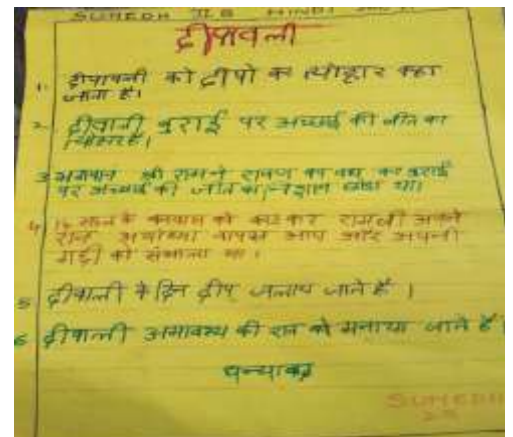 SUMEDH II B HINDI
दीपावली
1. दीपावली को दीपो का त्योहार कहा
जाता है।
2. दीवाली बुराई पर अच्छाई की जीत का
त्योहार है।
3 भगवान श्री राम ने रावण का वध कर बुराई
पर अच्छाई की जीत का निशान छोडा था।
4 14 साल के वनवास को काट कर रामजी अपने
अयोध्या वापस आए और अपनी
गद्दी को संभाला था।
5 दीवाली के दिन दीप जलाए जाते हैं।
6 दीवाली अमावस्य की रात को मनाया जाते हैं।
धन्यावाद
SUMEDH